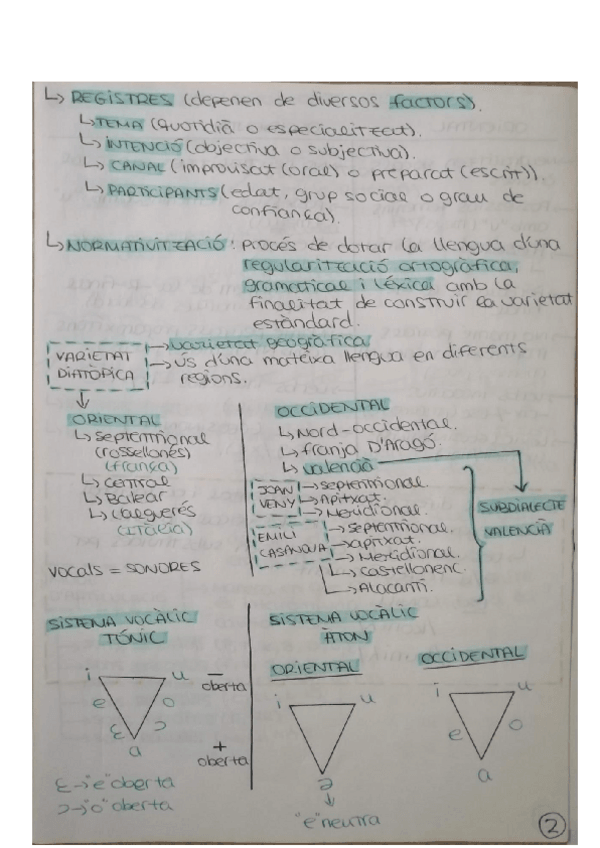 ↳ REGISTRES (depenen de diversos factors).
↳ TEMA (quotidià o especialitzat).
↳ INTENCIÓ (objectiva o subjectiva).
↳ CANAL (improvisat (oral) o preparat (escrit)).
↳ PARTICIPANTS (edat, grup social o grau de
confiança).
↳ NORMATIVITZACIÓ: procés de dotar la llengua d'una
regularització ortogràfica,
gramatical i lèxica amb la
finalitat de construir la varietat
estàndard.
VARIETAT
DIATÒPICA
→ varietat geogràfica
→ ús d'una mateixa llengua en diferents
regions.
ORIENTAL
↳ septentrional
(rossellonés)
(frança)
↳ central
↳ Balear
↳ L'alguerés
(ITÀLIA)
VOCALS = SONORES
OCCIDENTAL
↳ Nord-occidental.
↳ franja D'Aragó.
↳ valencià
JOAN
VENY
→ septentrional.
↳ Apitxat.
↳ Meridional.
EMILI
CASANOVA
→ septentrional.
→ apitxat.
↳ Meridional.
↳ Castellonenc.
↳ Alacantí.
SUBDIALECTE
VALENCIÀ
SISTEMA VOCÀLIC
TÒNIC
i u
e o
ɛ ɔ
a
—
oberta
+
oberta
ɛ → "e" oberta
ɔ → "o" oberta
SISTEMA VOCÀLIC
ÀTON
ORIENTAL
i u
ə
↓
"e" neutra
OCCIDENTAL
i u
e o
a
2